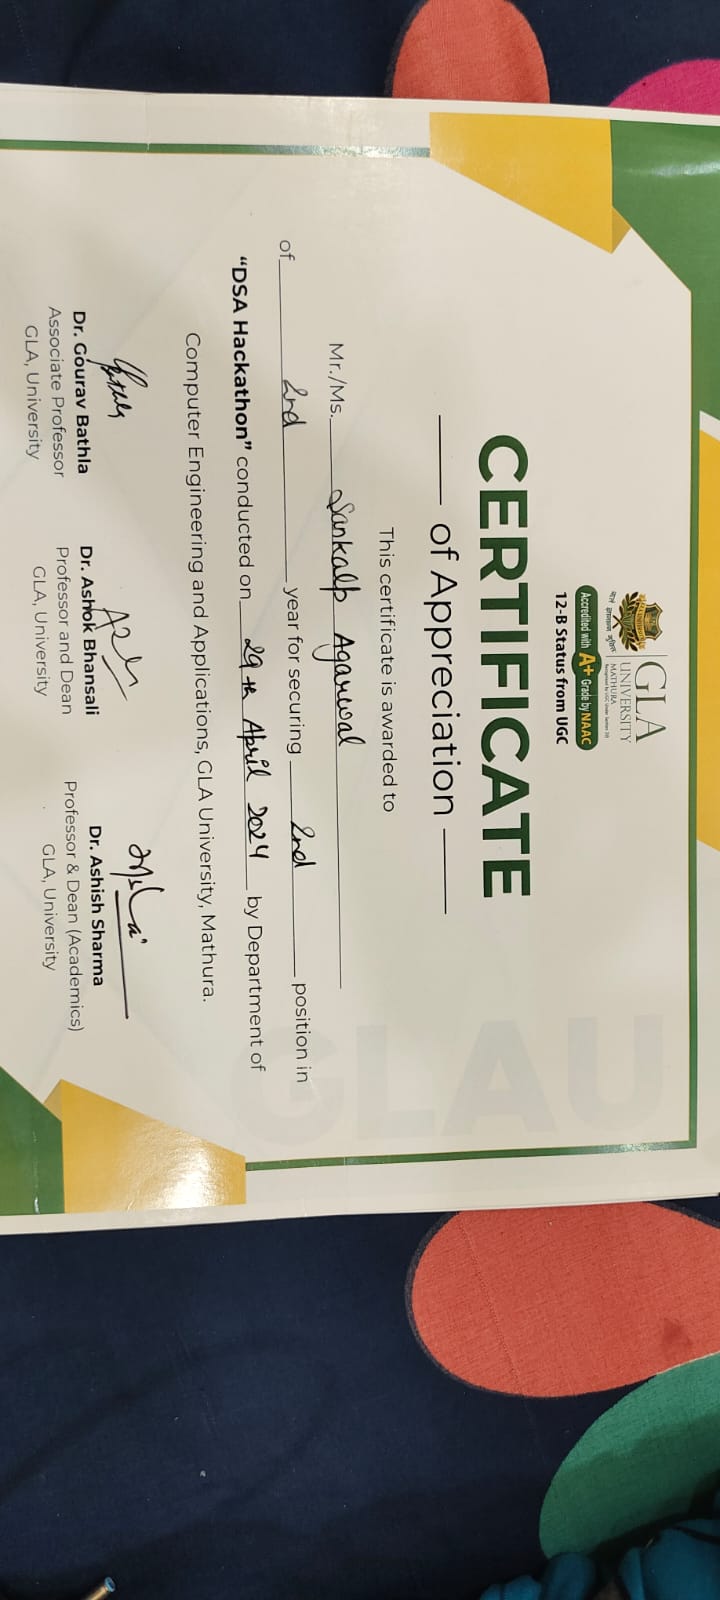 GLA
UNIVERSITY
MATHURA
Recognised by UGC Under Section 2(f)
Accredited with A+ Grade by NAAC
12-B Status from UGC
CERTIFICATE
of Appreciation
This certificate is awarded to
Mr./Ms. Sankalp Agarwal
of 2nd year for securing 2nd position in
“DSA Hackathon” conducted on 29th April 2024 by Department of
Computer Engineering and Applications, GLA University, Mathura.
Dr. Gourav Bathla
Associate Professor
GLA, University
Dr. Ashok Bhansali
Professor and Dean
GLA, University
Dr. Ashish Sharma
Professor & Dean (Academics)
GLA, University
GLAU